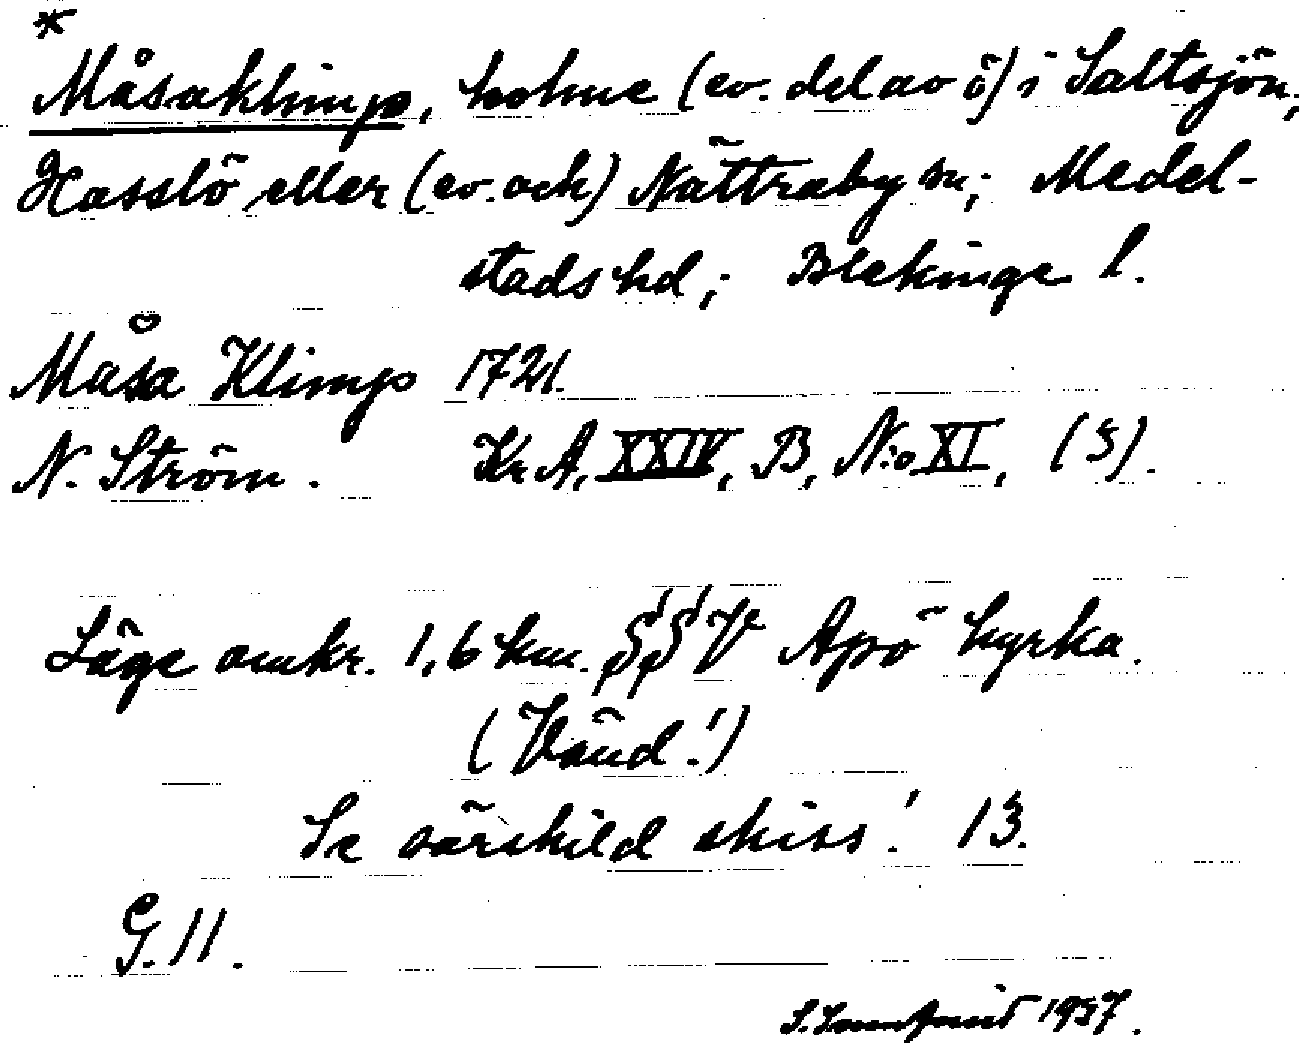 *
Måsaklimp, holme (ev. del av ö) i Saltsjön;
Hasslö eller (ev. och) Nättraby sn; Medel-
stads hd; Blekinge l.
Måsa Klimp 1721.
N. Ström. Kr. A, XXIV, B, N:o XI, (3).
Läge omkr. 1,6 km. SSV Aspö kyrka.
(Vänd!)
Se särskild skiss! 13.
G. 11.
1937.